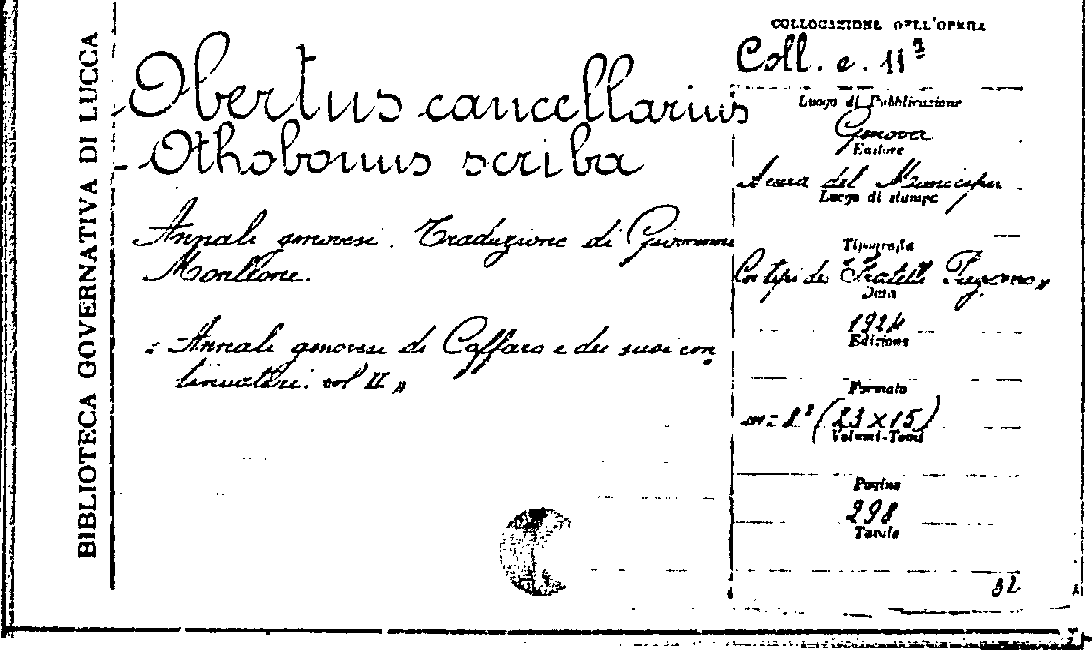 BIBLIOTECA GOVERNATIVA DI LUCCA
Obertus cancellarius
Othobonus scriba
Annali genovesi. Traduzione di Giovanni
Monleone.
= Annali genovesi di Caffaro e dei suoi con
tinuatori. vol II "
COLLOCAZIONE DELL'OPERA
Coll. e. 11²
Luogo di Pubblicazione
Genova
Editore
A cura del Municipio
Luogo di stampa
Tipografia
Coi tipi dei Fratelli Pagano "
Data
1924
Edizione
Formato
in = 8° (23 x 15)
Volumi-Tomi
Pagine
298
Tavole